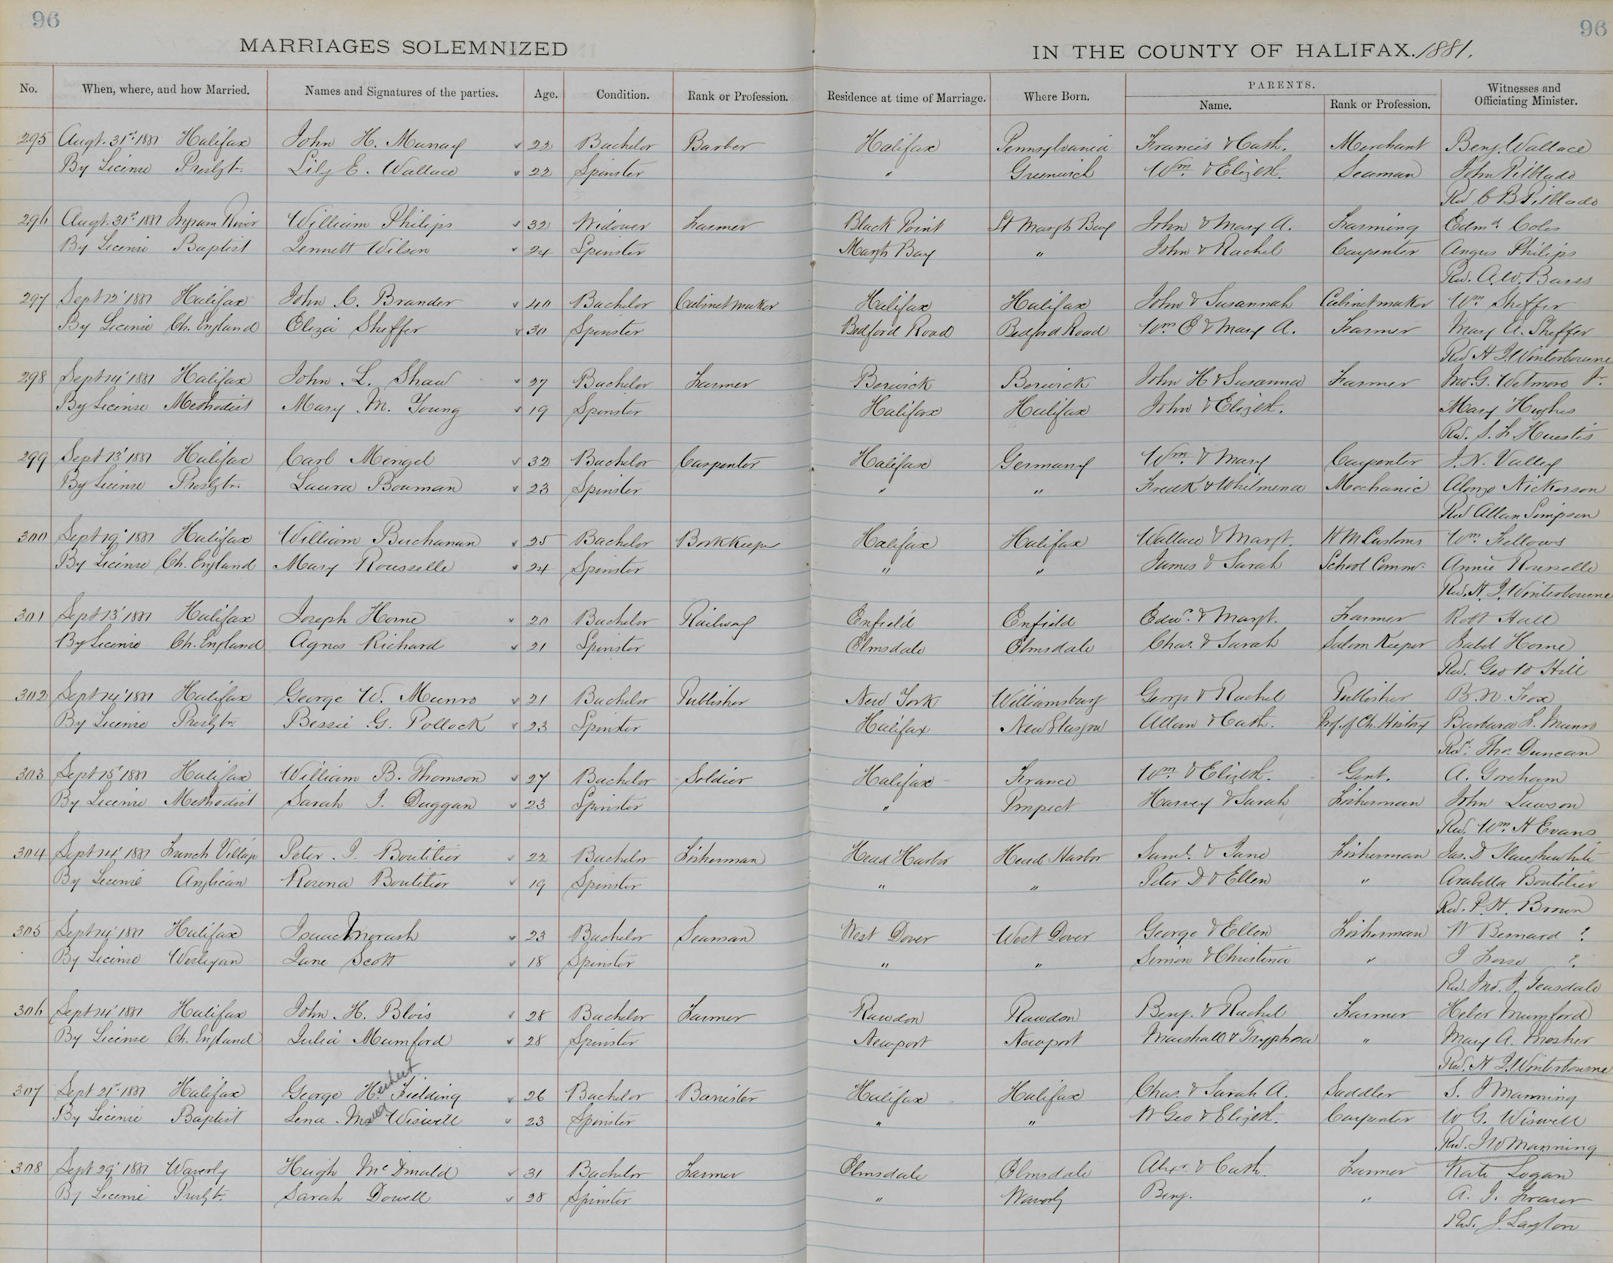 96
96
MARRIAGES SOLEMNIZED IN THE COUNTY OF HALIFAX. 1881.
No. When, where, and how Married. Names and Signatures of the parties. Age. Condition. Rank or Profession. Residence at time of Marriage. Where Born. PARENTS. Name. Rank or Profession. Witnesses and Officiating Minister.
295 Augt. 31st 1881 Halifax John H. Murray 22 Bachelor Barber Halifax Pennsylvania Francis & Cath. Merchant Benj. Wallace
By License Presbyt. Lily E. Wallace 22 Spinster " Greenwich Wm. & Elizth. Seaman John Pilblado
Rev C B Pitblado
296 Augt. 31st 1881 Ingram River William Philips 32 Widower Farmer Black Point St Margts Bay John & Mary A. Farming Edmd Coles
By License Baptist Jennett Wilson 24 Spinster Margts Bay " John & Rachel Carpenter Angus Philips
Rev. A. W. Barss
297 Sept 12' 1881 Halifax John C. Brander 40 Bachelor Cabinetmaker Halifax Halifax John & Susannah Cabinetmaker Wm Sheffer
By License Ch. England Eliza Sheffer 30 Spinster Bedford Road Bedford Road Wm & Mary A. Farmer Mary A. Sheffer
Rev H J. Winterbourne
298 Sept 14' 1881 Halifax John L. Shaw 27 Bachelor Farmer Berwick Berwick John H & Susanna Farmer Jno. G. Wetmore Jr.
By License Methodist Mary M. Young 19 Spinster Halifax Halifax John & Elizth. Mary Hughes
Rev. S. F. Huestis
299 Sept 13' 1881 Halifax Carl Mengel 32 Bachelor Carpenter Halifax Germany Wm. & Mary Carpenter J. N. Valley
By License Presbytn Laura Bouman 23 Spinster " " Fredk & Whilmena Mechanic Alonzo Nickerson
Rev Allan Simpson
300 Sept 19' 1881 Halifax William Buchanan 25 Bachelor Bookkeeper Halifax Halifax Wallace & Margt. H M Customs Wm Fellows
By License Ch. England Mary Rousselle 24 Spinster " " James & Sarah School Commr. Annie Rousselle
Rev. H. J. Winterbourne
301 Sept 13' 1881 Halifax Joseph Horne 20 Bachelor Railway Enfield Enfield Edwd. & Margt. Farmer Robt Hall
By License Ch. England Agnes Richard 21 Spinster Elmsdale Elmsdale Chas. & Sarah Saloon Keeper Isabel Horne
Rev. Geo W Hill
302 Sept 14' 1881 Halifax George W. Munro 21 Bachelor Publisher New York Williamsburg George & Rachel Publisher B. N. Fox
By License Presbytn Bessie G. Pollock 23 Spinster Halifax New Glasgow Allan & Cath. Prof. of Ch. History Barbara F. Munro
Rev. Thos. Duncan
303 Sept 15' 1881 Halifax William B. Thomson 27 Bachelor Soldier Halifax France Wm. & Elizth. Gent. A. Goreham
By License Methodist Sarah J. Duggan 23 Spinster " Prospect Harvey & Sarah Fisherman John Lawson
Rev. Wm. H Evans
304 Sept 14' 1881 French Village Peter J. Boutilier 22 Bachelor Fisherman Head Harbor Head Harbor Saml. & Jane Fisherman Jas. D
By License Anglican Rowena Boutilier 19 Spinster " " Peter D & Ellen " Arabella Boutilier
Rev. P. H. Brown
305 Sept 14' 1881 Halifax Isaac 23 Bachelor Seaman West Dover West Dover George & Ellen Fisherman W Bernard ?
By License Wesleyan Jane Scott 18 Spinster " " Simon & Christina " J ?
Rev. Jno. J. Teasdale
306 Sept 14' 1881 Halifax John H. Blois 28 Bachelor Farmer Rawdon Rawdon Benj. & Rachel Farmer Heber Mumford
By License Ch. England Julia Mumford 28 Spinster Newport Newport Marshall & Tryphena " Mary A. Mosher
Rev. H J Winterbourne
307 Sept 21st 1881 Halifax George Herbert Fielding 26 Bachelor Barrister Halifax Halifax Chas. & Sarah A. Saddler S. Manning
By License Baptist Lena Maud Wiswell 23 Spinster " " W Geo & Elizth. Carpenter W G. Wiswell
Rev. J W Manning
308 Sept 29' 1881 Waverly Hugh McDonald 31 Bachelor Farmer Elmsdale Elmsdale Alexr. & Cath Farmer Kate Logan
By License Presbyt. Sarah Dowell 28 Spinster " Waverly Benj. " A. J. Fraser
Rev. J. Layton